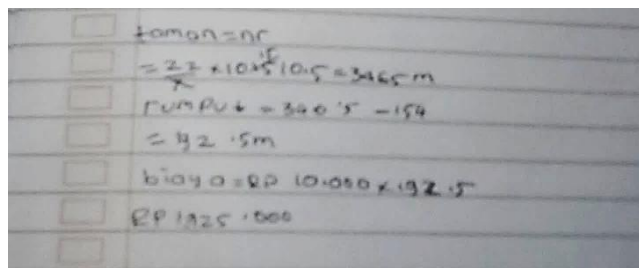 taman = πr
= 22/7 × 10.5 10.5 = 3465 m
rumput = 346.5 - 154
= 192.5m
biaya = RP 10.000 × 192.5
RP 1925.000